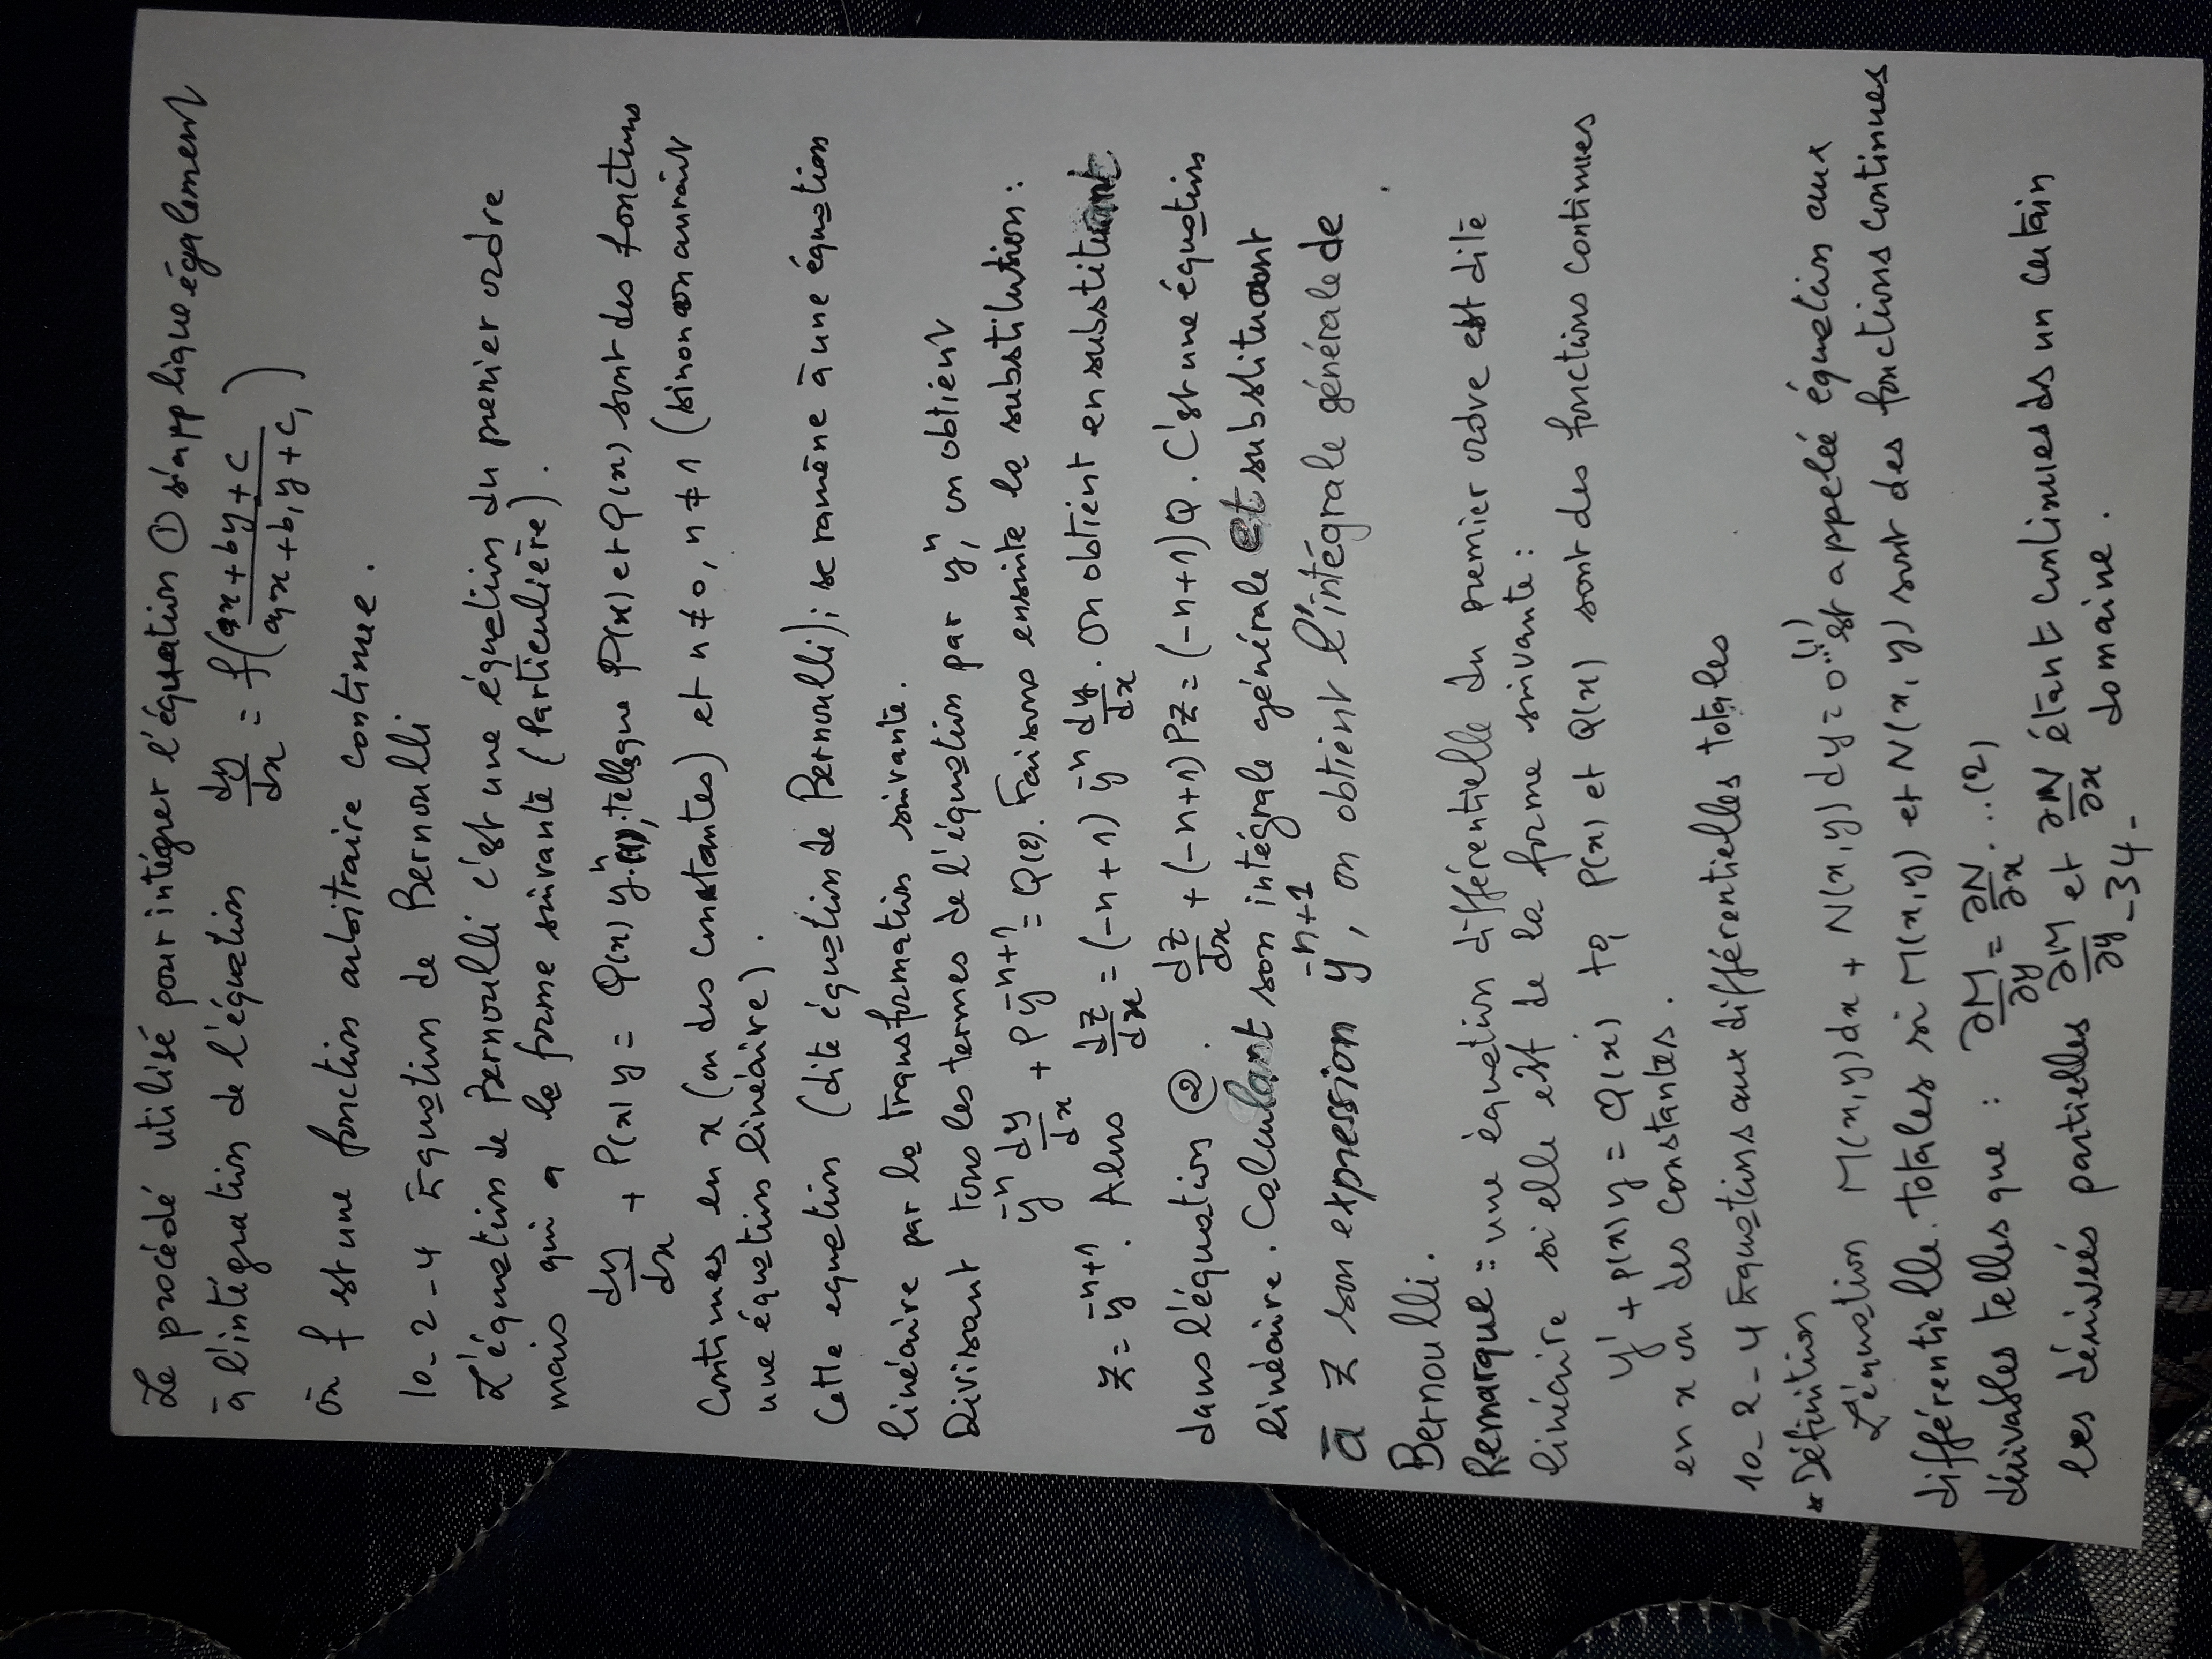 Le procédé utilisé pour intégrer l'équation ① s'applique également
à l'intégration de l'équation dy/dx = f((ax + by + c)/(a₁x + b₁y + c₁))
où f est une fonction arbitraire continue.
10-2-4 Equation de Bernoulli
L'équation de Bernoulli c'est une équation du premier ordre
mais qui a la forme suivante (Particulière).
dy/dx + P(x)y = Q(x)yⁿ...(1); telle que P(x) et Q(x) sont des fonctions
Continues en x (ou des constantes) et n ≠ 0, n ≠ 1 (sinon on aurait
une équation linéaire).
Cette equation (dite équation de Bernoulli); se ramène à une équation
linéaire par la transformation suivante.
Divisant tous les termes de l'équation par yⁿ, on obtient
y⁻ⁿ dy/dx + P y⁻ⁿ⁺¹ = Q (2). Faisons ensuite la substitution:
z = y⁻ⁿ⁺¹. Alors dz/dx = (-n+1) y⁻ⁿ dy/dx. On obtient en substituant
dans l'équation ②. dz/dx + (-n+1)Pz = (-n+1)Q. C'est une équation
linéaire. Calculant son intégrale générale et substituant
à z son expression y⁻ⁿ⁺¹, on obtient l'intégrale générale de
Bernoulli.
Remarque = une équation différentielle du premier ordre est dite
linéaire si elle est de la forme suivante:
y' + p(x)y = Q(x) tq P(x) et Q(x) sont des fonctions continues
en x ou des constantes.
10-2-4 Equations aux différentielles totales
* Définition
L'équation M(x,y)dx + N(x,y)dy = 0...(1) est appelée équation aux
différentielle totales si M(x,y) et N(x,y) sont des fonctions continues
dérivables telles que : ∂M/∂y = ∂N/∂x ...(2)
les dérivées partielles ∂M/∂y et ∂N/∂x étant continues ds un certain
domaine.
-34-